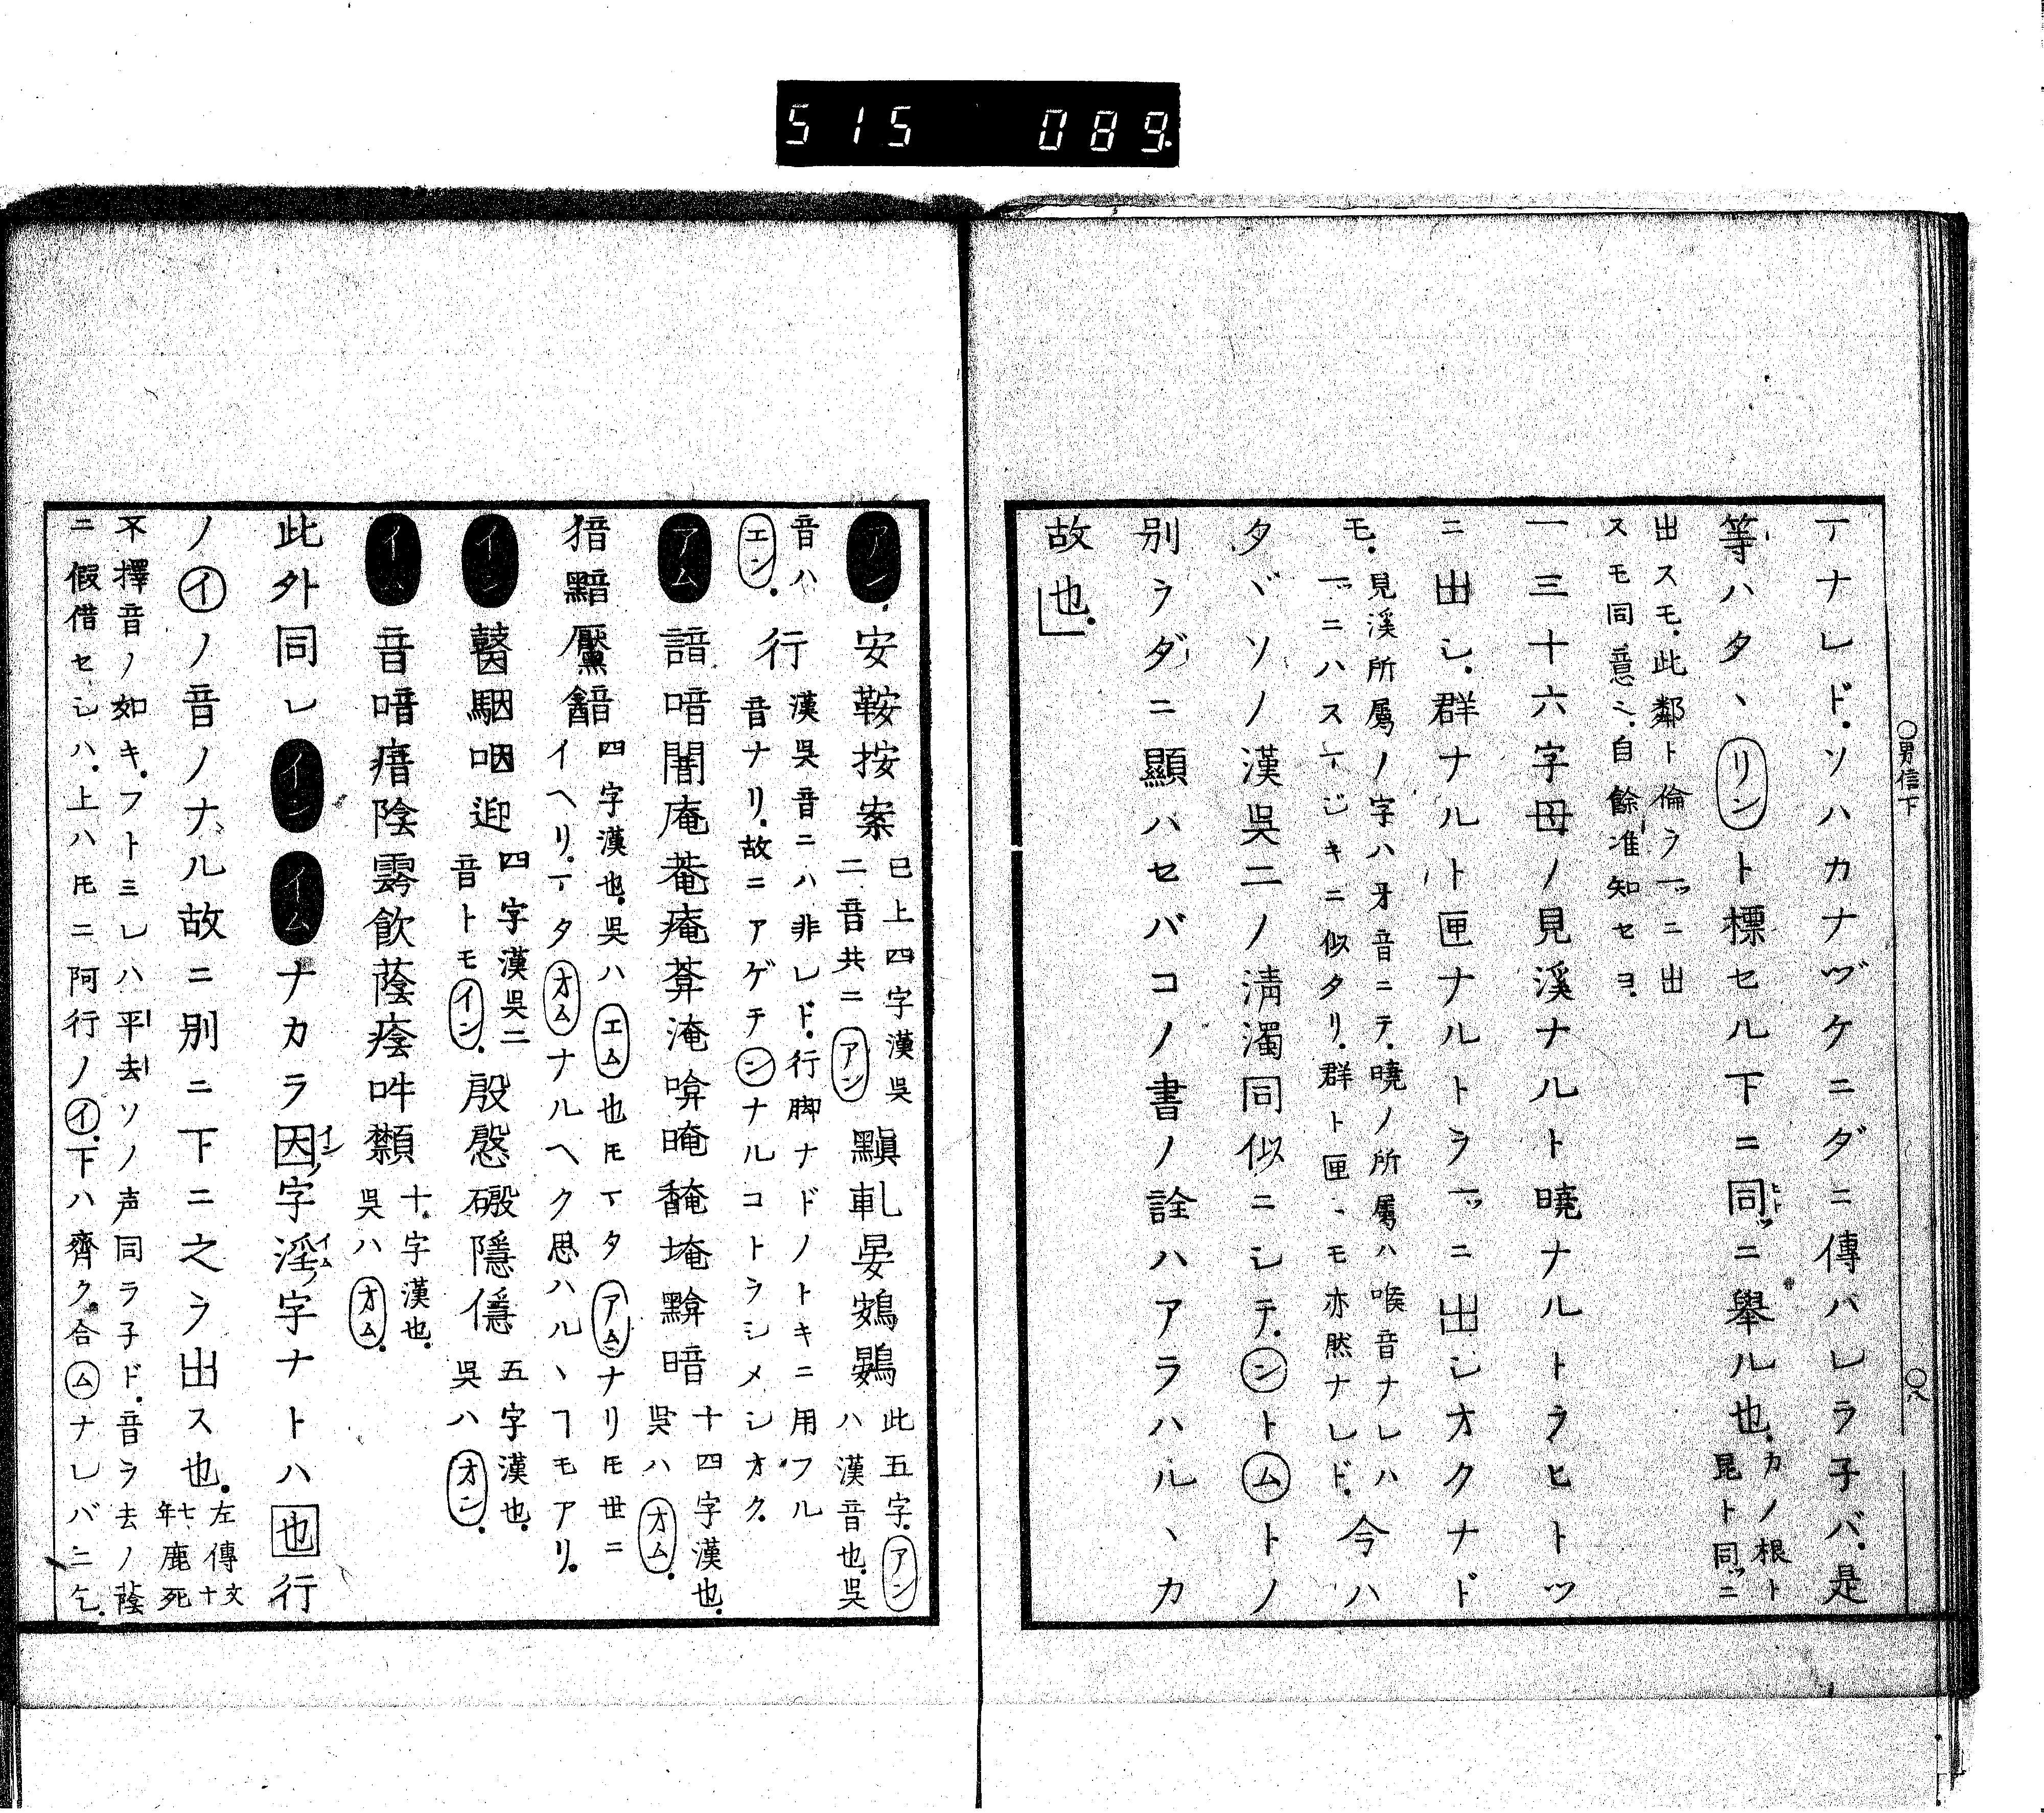 515 089.
○男信下
○八
ヿナレド．ソハカナヅケニダニ傳バレラ子バ．是
等ハタヽリント標セル下ニ同ヒトツニ舉ル也．カノ根ト
昆ト同ツニ
出スモ．此鄰ト倫ヲ一ツニ出
スモ同意ヘ．自餘准知セヨ．
一三十六字母ノ見溪ナルト曉ナルトヲヒトツ
ニ出シ．群ナルト匣ナルトヲ一ツニ出シオクナド
モ．見溪所屬ノ字ハ牙音ニテ．曉ノ所屬ハ喉音ナレハ
一ツニハスヿジキニ似タリ．群ト匣ヽモ亦然ナレド．今ハ
タヾソノ漢呉二ノ淸濁同似ニシテ．ントムトノ
別ヲダニ顯ハセバコノ書ノ詮ハアラハルヽカ
故也．
アン．安鞍按案 已上四字漢呉
二音共ニアン 黰軋晏鴳鷃 此五字．アン
ハ漢音也．呉
音ハ
エン． 行 漢呉音ニハ非レド．行脚ナドノトキニ用フル
音ナリ．故ニアゲテンナルコトヲシメシオク．
アム 諳喑闇庵菴痷葊淹唵晻馣埯黭暗 十四字漢也．
呉ハオム．
猎黯黶韽 四字漢也．呉ハエム也𪜈ヿタアムナリ𪜈世ニ
イヘリ．ヿタオムナルヘク思ハルヽヿモアリ．
イン 毉駰咽迎 四字漢呉二
音トモイン． 殷慇磤隱㒚 五字漢也．
呉ハオン．
イム 音喑瘖陰霠飮蔭癊吽䫴 十字漢也．
呉ハオム．
此外同レインイムナカラ因イン字淫イム字ナトハ也行
ノイノ音ノナル故ニ別ニ下ニ之ヲ出ス也．左傳文十
七年鹿死
不擇音ノ如キ．フトミレハ平去ソノ声同ラ子ド．音ヲ去ノ蔭
ニ假借セシハ．上ハ𪜈ニ阿行ノイ．下ハ齊ク合ムナレバニ乞．